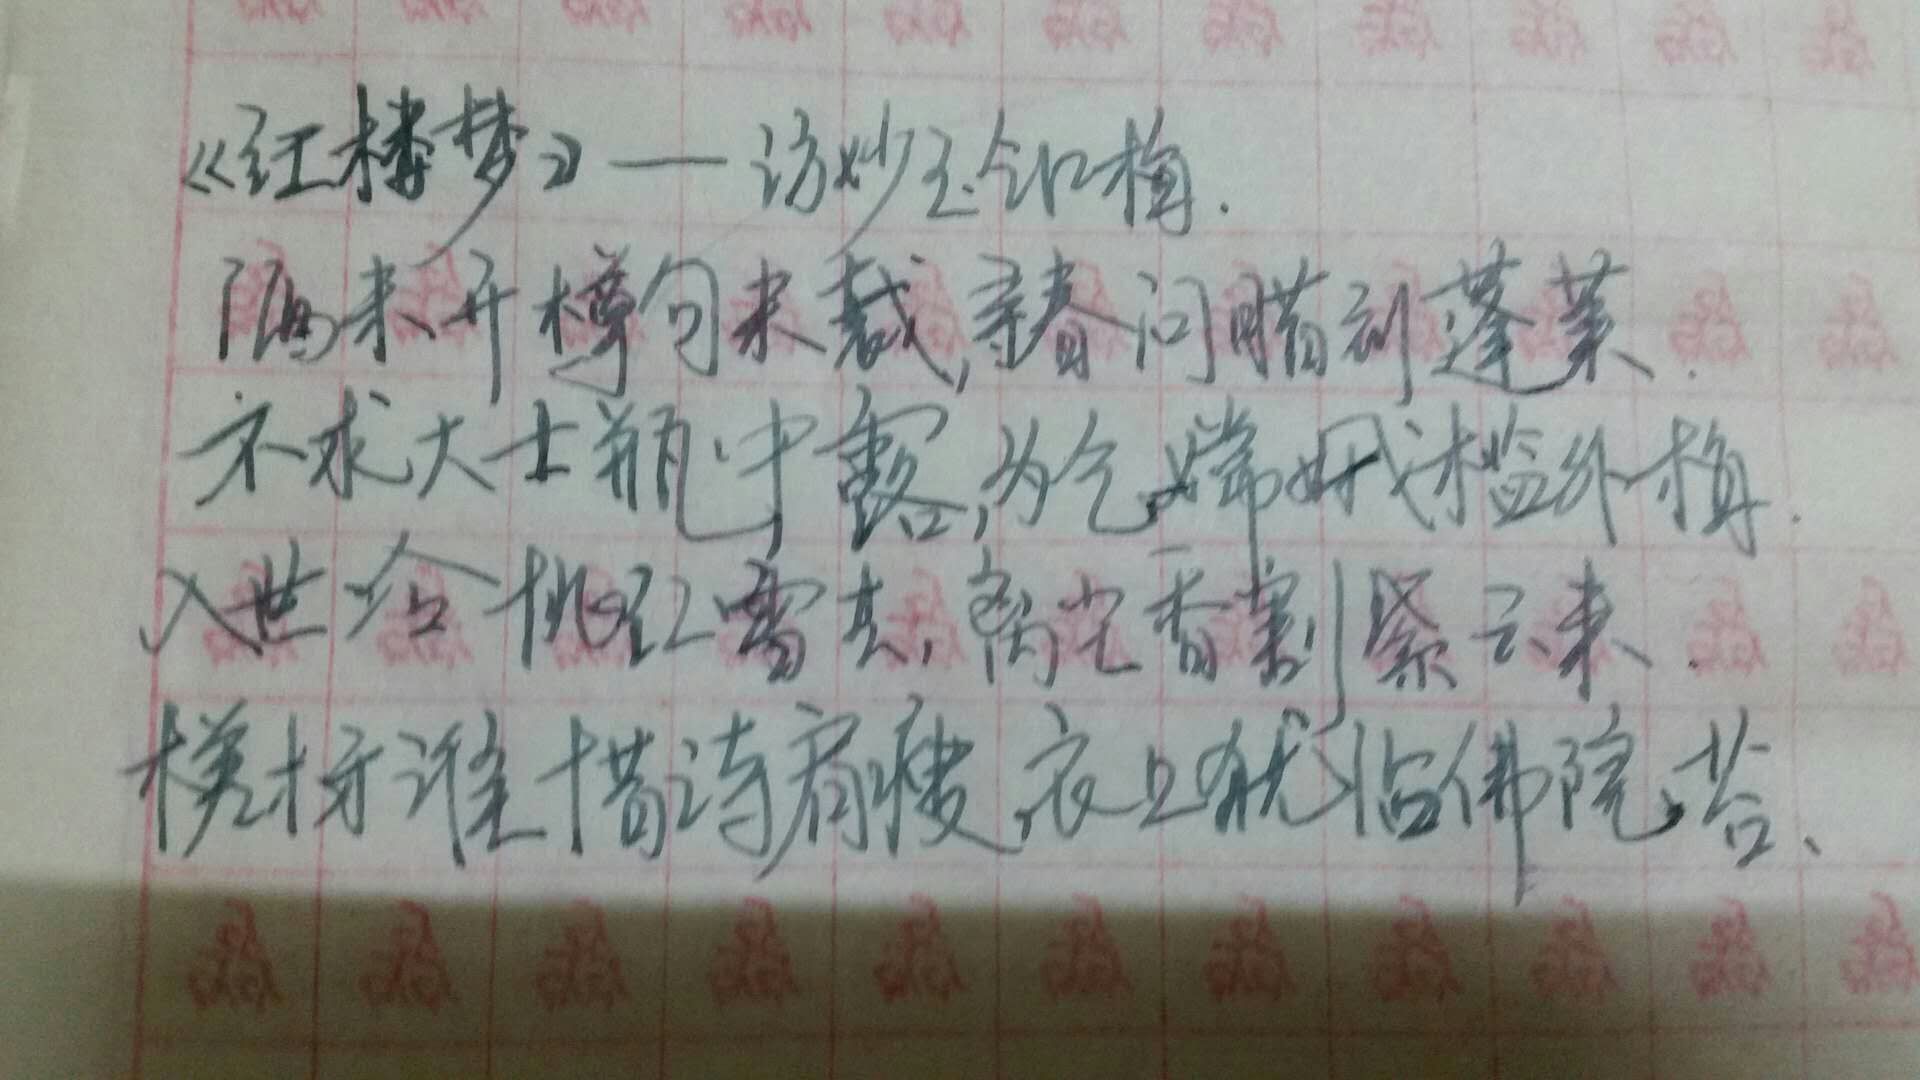 《红楼梦》——访妙玉乞红梅.
酒未开樽句未裁,寻春问腊到蓬莱.
不求大士瓶中露,为乞嫦娥槛外梅.
入世冷挑红雪去,离尘香割紫云来.
槎枒谁惜诗肩瘦,衣上犹沾佛院苔、